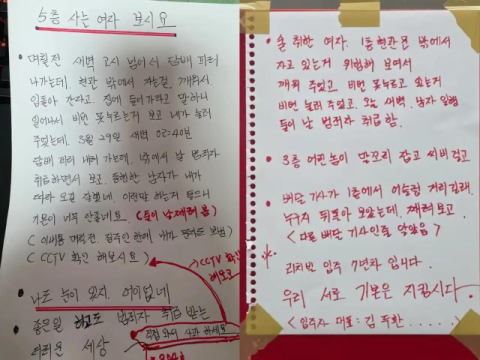 5층 사는 여자 보시요
며칠전 새벽 2시 넘어서 담배 피러
나가는데, 현관 밖에서 자는걸, 깨워서
입돌아 간다고 집에 들어가라고 말하니
일어나서 비번 못누르는거 보고 내가 눌러
주었는데, 3월 29일 새벽 02:40분
담배 피러 내려 가는데, 밖에서 날 범죄자
취급하면서 보고, 동행한 남자가 내가
여자
기분이 너무 안좋네요 (둘이 날 째려 봄)
(이 내용 며칠전, 집주인한테 내가
(CCTV 확인 해보시요)
CCTV 확인
해보고
나도 눈이 있지. 어이없네
좋은일 하고도 범죄자 취급 받는
직접 와서 사과 하세요
세상
술 취한 여자. 1층 현관문 밖에서
자고 있는거 위험해 보여서
깨워 주었고 비번 못누르고 있는거
비번 눌러 주었고, 오늘 새벽, 남자 일행
둘이 날 범죄자 취급 함.
3층 어린놈이 말꼬리 잡고 씨비 걸고
배달 기사가 1층에서 어슬렁 거리길래.
누군지 뒤돌아 보았는데, 째려보고
<다른 배달 기사인줄 알았음>
입주
우리 서로 기본은 지킵시다.
<입주자 대표: 김